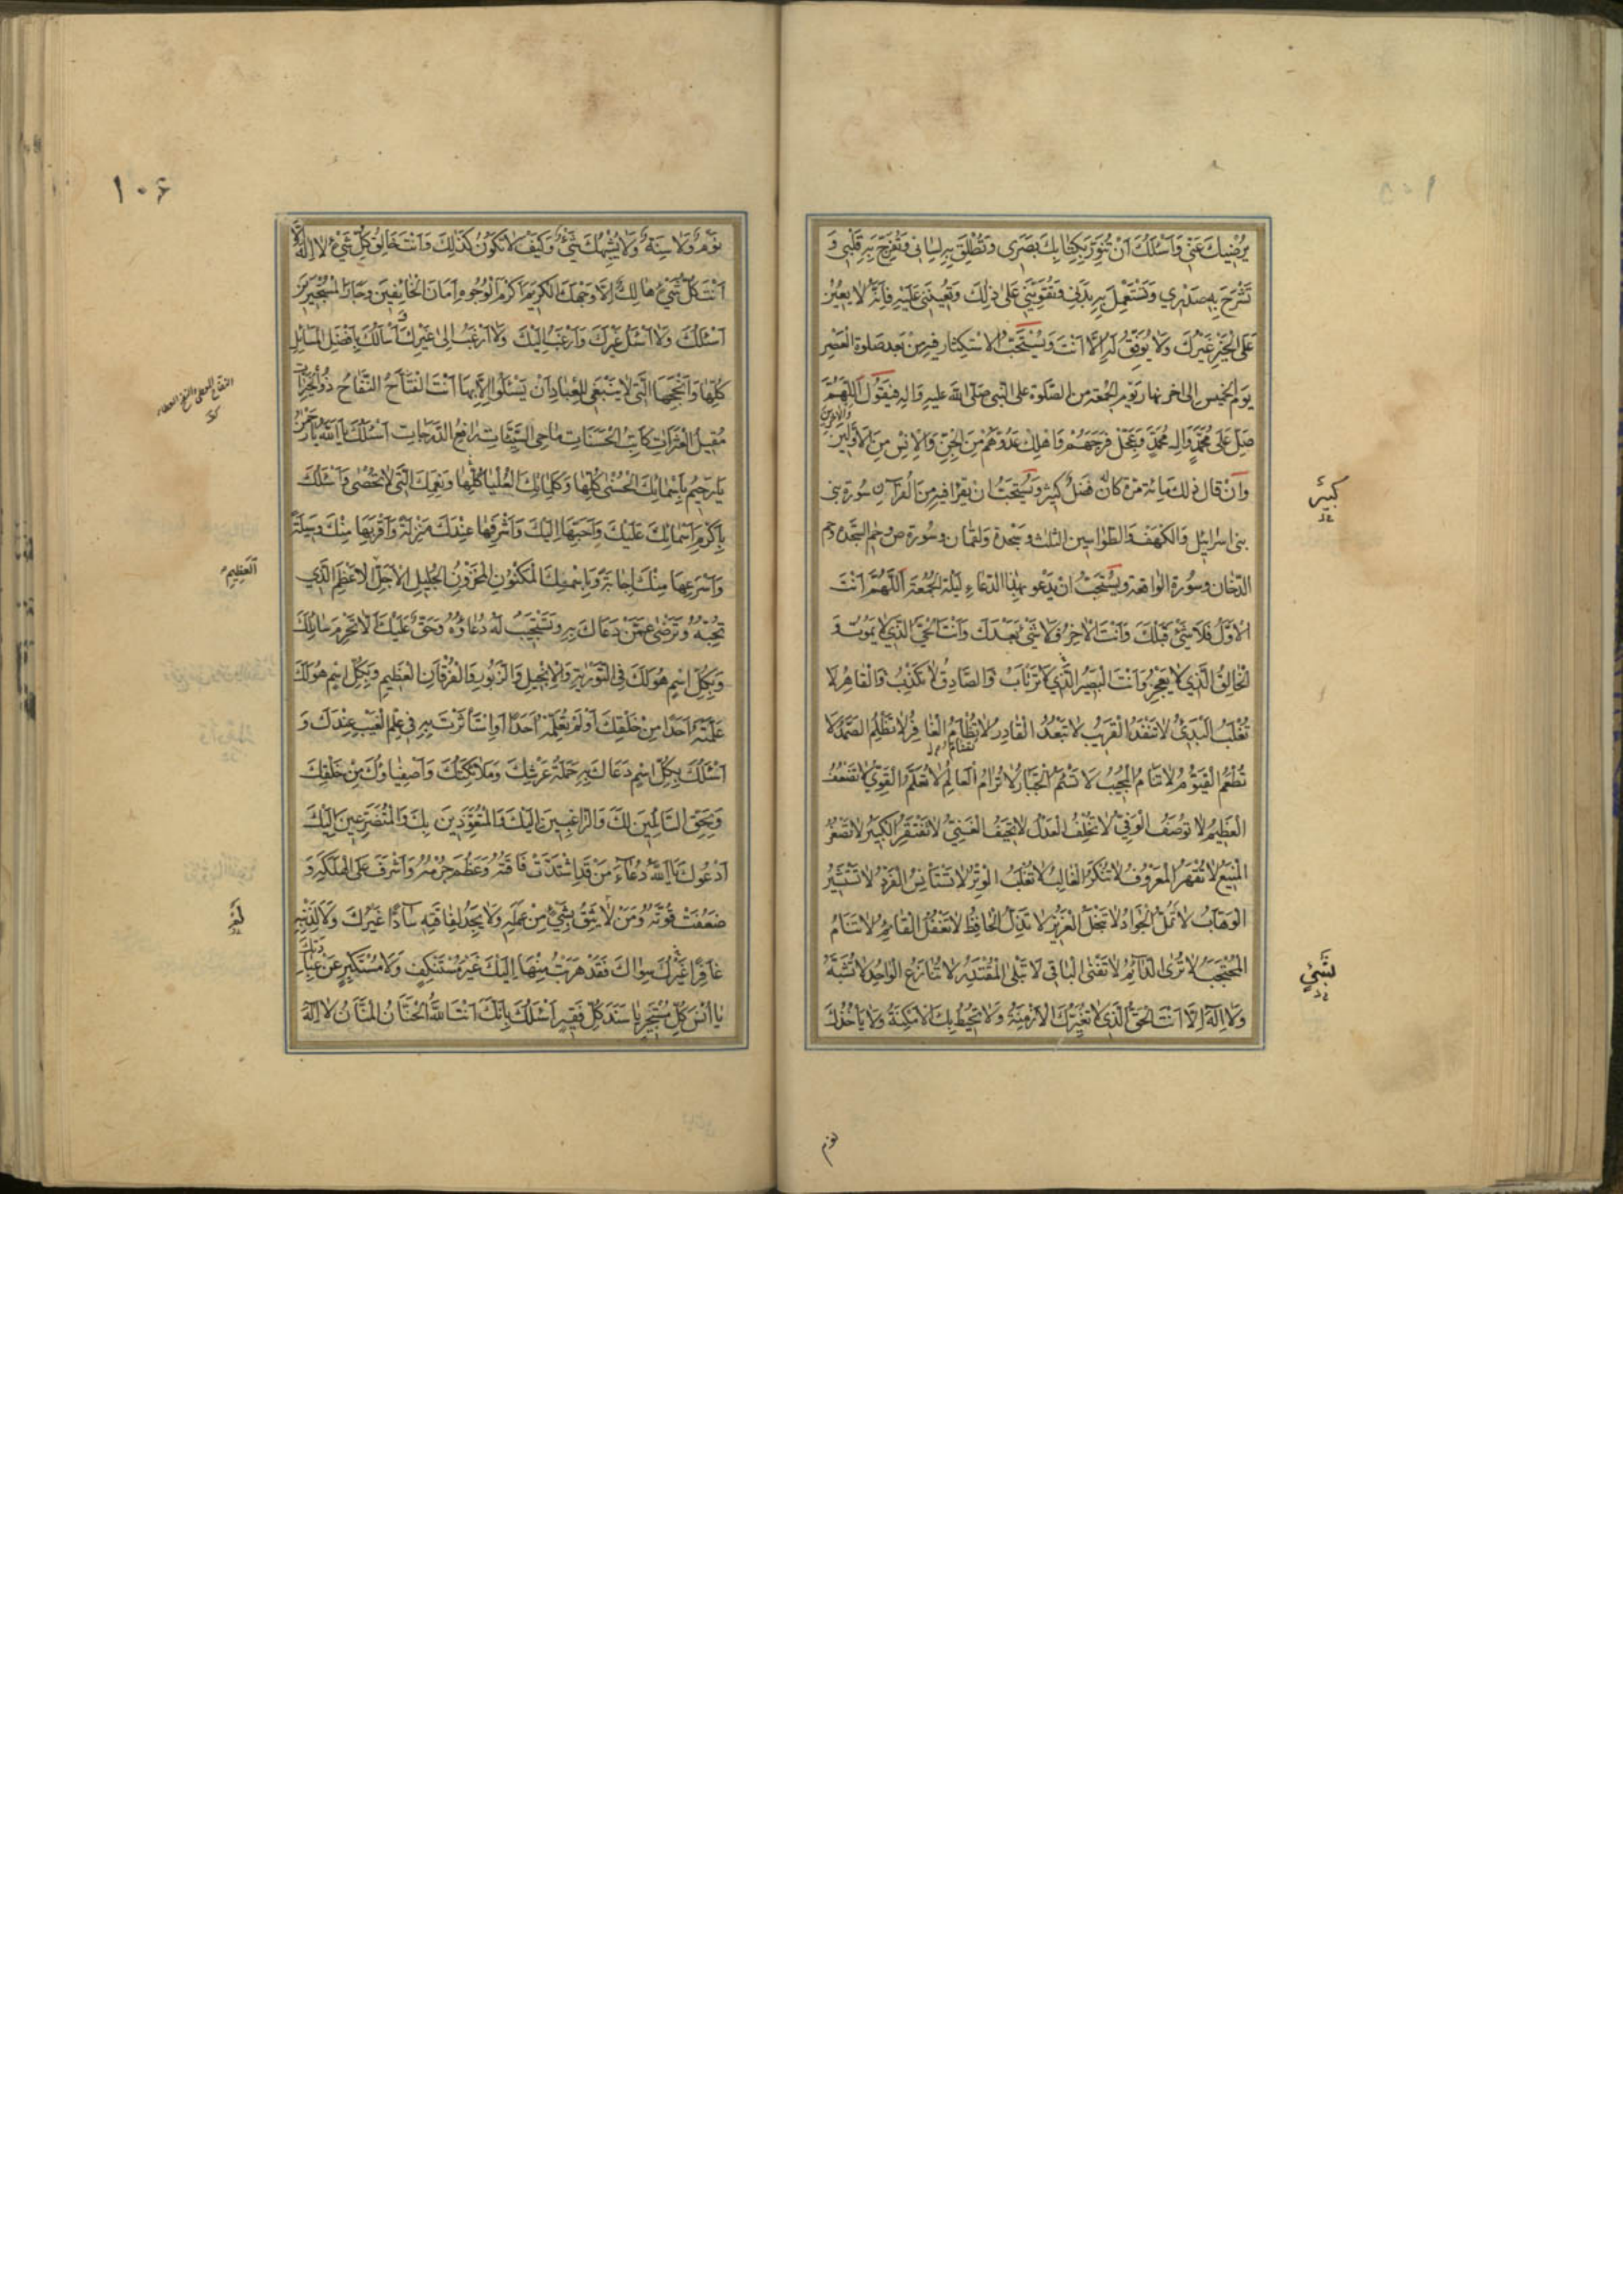 يُرْضِيكَ عَنِّي وَاَسْئَلُكَ اَنْ تُنَوِّرَ بِكِتَابِكَ بَصَرِي وَتُطْلِقَ بِهِ لِسَانِي وَتُفَرِّحَ بِهِ قَلْبِي وَ
تَشْرَحَ بِهِ صَدْرِي وَتَسْتَعْمِلَ بِهِ بَدَنِي وَتُقَوِّيَنِي عَلَى ذٰلِكَ وَتُعِينَنِي عَلَيْهِ فَاِنَّهُ لَا يُعِينُ
عَلَى الْخَيْرِ غَيْرُكَ وَلَا يُوَفِّقُ لَهُ اِلَّا اَنْتَ وَيُسْتَحَبُّ الاسْتِكثار فيه مِنْ بَعد صَلٰوة الْعَصْرِ
يَوم الخميس الى اخر نهار يَوْم الجمعة من الصَّلٰوة على النّبى صَلَّى اللّٰه عليه وَاله فيَقُول اَللّٰهُمَّ
صَلِّ عَلٰى مُحَمَّدٍ وَاٰلِ مُحَمَّدٍ وَعَجِّلْ فَرَجَهُمْ وَاَهْلِكْ عَدُوَّهُمْ مِنَ الْجِنِّ وَالْاِنْسِ مِنَ الْاَوَّلِينَ
وَالْاٰخِرِينَ
وَاِنْ قال ذلك مِائة مرّة كانَ لَهُ فَضلٌ كَثِيرٌ وَيُسْتَحَبُّ ان يَقْرَا فيه مِنَ الْقُرآنِ سُورة بنى
كَبِيرٌ
بنى اسرائيل وَالكهف وَالطّواسين الثلث وسَجْدة وَلقمان وَسُورة ص وحٰم السّجْدة وحم
الدّخان وسُورة الواقعة ويُسْتَحَبُّ ان يَدْعُو بِهٰذا الدّعاءِ لَيْلة الجُمُعَة اَللّٰهُمَّ اَنْتَ
الْاَوَّلُ فَلَا شَيْءَ قَبْلَكَ وَاَنْتَ الْاٰخِرُ فَلَا شَيْءَ بَعْدَكَ وَاَنْتَ الْحَيُّ الَّذِي لَا يَمُوتُ وَ
الْخَالِقُ الَّذِي لَا يَعْجِزُ وَاَنْتَ الْبَصِيرُ الَّذِي لَا تَرْتَابُ وَالصَّادِقُ لَا تَكْذِبُ وَالْقَاهِرُ لَا
تُغْلَبُ الْبَدِيءُ لَا تَنْفَدُ الْقَرِيبُ لَا تَبْعُدُ الْقَادِرُ لَا تُضَامُ الْغَافِرُ لَا تَظْلِمُ الصَّمَدُ لَا
تُطْعَمُ الْقَيُّومُ لَا تَنَامُ الْمُجِيبُ لَا تَسْئَمُ الْجَبَّارُ لَا تُرَامُ الْعَالِمُ لَا تُعَلَّمُ الْقَوِيُّ لَا تَضْعُفُ
الْعَظِيمُ لَا تُوصَفُ الْوَفِيُّ لَا تُخْلِفُ الْعَدْلُ لَا تَحِيفُ الْغَنِيُّ لَا تَفْتَقِرُ الْكَبِيرُ لَا تَصْغُرُ
الْمَنِيعُ لَا تُقْهَرُ الْمَعْرُوفُ لَا تُنْكَرُ الْغَالِبُ لَا تُغْلَبُ الْوِتْرُ لَا تَسْتَأْنِسُ الْفَرْدُ لَا تَسْتَشِيرُ
الْوَهَّابُ لَا تَمَلُّ الْجَوَادُ لَا تَبْخَلُ الْعَزِيزُ لَا تَذِلُّ الْحَافِظُ لَا تَغْفُلُ الْقَائِمُ لَا تَنَامُ
الْمُحْتَجِبُ لَا تُرَى الدَّائِمُ لَا تَفْنَى الْبَاقِي لَا تَبْلَى الْمُقْتَدِرُ لَا تُنَازَعُ الْوَاحِدُ لَا تُشَبَّهُ
بِشَيْءٍ
وَلَا اِلٰهَ اِلَّا اَنْتَ الْحَقُّ الَّذِي لَا تُغَيِّرُكَ الْاَزْمِنَةُ وَلَا تُحِيطُ بِكَ الْاَمْكِنَةُ وَلَا يَأْخُذُكَ
نوم
١٠۶
نَوْمٌ وَلَا سِنَةٌ وَلَا يُشْبِهُكَ شَيْءٌ وَكَيْفَ لَا تَكُونُ كَذٰلِكَ وَاَنْتَ خَالِقُ كُلِّ شَيْءٍ لَا اِلٰهَ اِلَّا
اَنْتَ كُلُّ شَيْءٍ هَالِكٌ اِلَّا وَجْهَكَ الْكَرِيمَ اَكْرَمَ الْوُجُوهِ وَاَمَانَ الْخَائِفِينَ وَجَارَ الْمُسْتَجِيرِينَ
اَسْئَلُكَ وَلَا اَسْئَلُ غَيْرَكَ وَاَرْغَبُ اِلَيْكَ وَلَا اَرْغَبُ اِلٰى غَيْرِكَ وَاَسْأَلُكَ بِاَفْضَلِ الْمَسَائِلِ
كُلِّهَا وَاَنْجَحِهَا الَّتِي لَا يَنْبَغِي لِلْعِبَادِ اَنْ يَسْئَلُوا اِلَّا بِهَا اَنْتَ الْفَتَّاحُ النَّفَّاحُ ذُو الْخَيْرَاتِ
مُقِيلُ الْعَثَرَاتِ كَاتِبُ الْحَسَنَاتِ مَاحِي السَّيِّئَاتِ رَافِعُ الدَّرَجَاتِ اَسْئَلُكَ يَا اَللّٰهُ يَا رَحْمٰنُ
يَا رَحِيمُ بِاَسْمَائِكَ الْحُسْنٰى كُلِّهَا وَكَلِمَاتِكَ الْعُلْيَا كُلِّهَا وَنِعَمِكَ الَّتِي لَا تُحْصٰى وَاَسْئَلُكَ
بِاَكْرَمِ اَسْمَائِكَ عَلَيْكَ وَاَحَبِّهَا اِلَيْكَ وَاَشْرَفِهَا عِنْدَكَ مَنْزِلَةً وَاَقْرَبِهَا مِنْكَ وَسِيلَةً
وَاَسْرَعِهَا مِنْكَ اِجَابَةً وَبِاسْمِكَ الْمَكْنُونِ الْمَخْزُونِ الْجَلِيلِ الْاَجَلِّ الْاَعْظَمِ الَّذِي
الْعَظِيمِ
تُحِبُّهُ وَتَرْضٰى عَمَّنْ دَعَاكَ بِهِ وَتَسْتَجِيبُ لَهُ دُعَاؤُهُ وَحَقٌّ عَلَيْكَ اَلَّا تَحْرِمَ سَائِلَكَ
وَبِكُلِّ اسْمٍ هُوَ لَكَ فِي التَّوْرٰيةِ وَالْاِنْجِيلِ وَالزَّبُورِ وَالْفُرْقَانِ الْعَظِيمِ وَبِكُلِّ اسْمٍ هُوَ لَكَ
عَلَّمْتَهُ اَحَدًا مِنْ خَلْقِكَ اَوْ لَمْ تُعَلِّمْهُ اَحَدًا اَوِ اسْتَأْثَرْتَ بِهِ فِي عِلْمِ الْغَيْبِ عِنْدَكَ وَ
اَسْئَلُكَ بِكُلِّ اسْمٍ دَعَاكَ بِهِ حَمَلَةُ عَرْشِكَ وَمَلَائِكَتُكَ وَاَصْفِيَاؤُكَ مِنْ خَلْقِكَ
وَبِحَقِّ السَّائِلِينَ لَكَ وَالرَّاغِبِينَ اِلَيْكَ وَالْمُتَعَوِّذِينَ بِكَ وَالْمُتَضَرِّعِينَ اِلَيْكَ
اَدْعُوكَ يَا اَللّٰهُ دُعَاءَ مَنْ قَدِ اشْتَدَّتْ فَاقَتُهُ وَعَظُمَ جُرْمُهُ وَاَشْرَفَ عَلَى الْهَلَكَةِ وَ
ضَعُفَتْ قُوَّتُهُ وَمَنْ لَا يَثِقُ بِشَيْءٍ مِنْ عَمَلِهِ وَلَا يَجِدُ لِفَاقَتِهِ سَادًّا غَيْرَكَ وَلَا لِذَنْبِهِ
غَافِرًا غَيْرَكَ سِوَاكَ فَقَدْ هَرَبْتُ مِنْهَا اِلَيْكَ غَيْرَ مُسْتَنْكِفٍ وَلَا مُسْتَكْبِرٍ عَنْ عِبَادَتِكَ
يَا اُنْسَ كُلِّ مُسْتَجِيرٍ يَا سَنَدَ كُلِّ فَقِيرٍ اَسْئَلُكَ بِاَنَّكَ اَنْتَ اللّٰهُ الْحَنَّانُ الْمَنَّانُ لَا اِلٰهَ